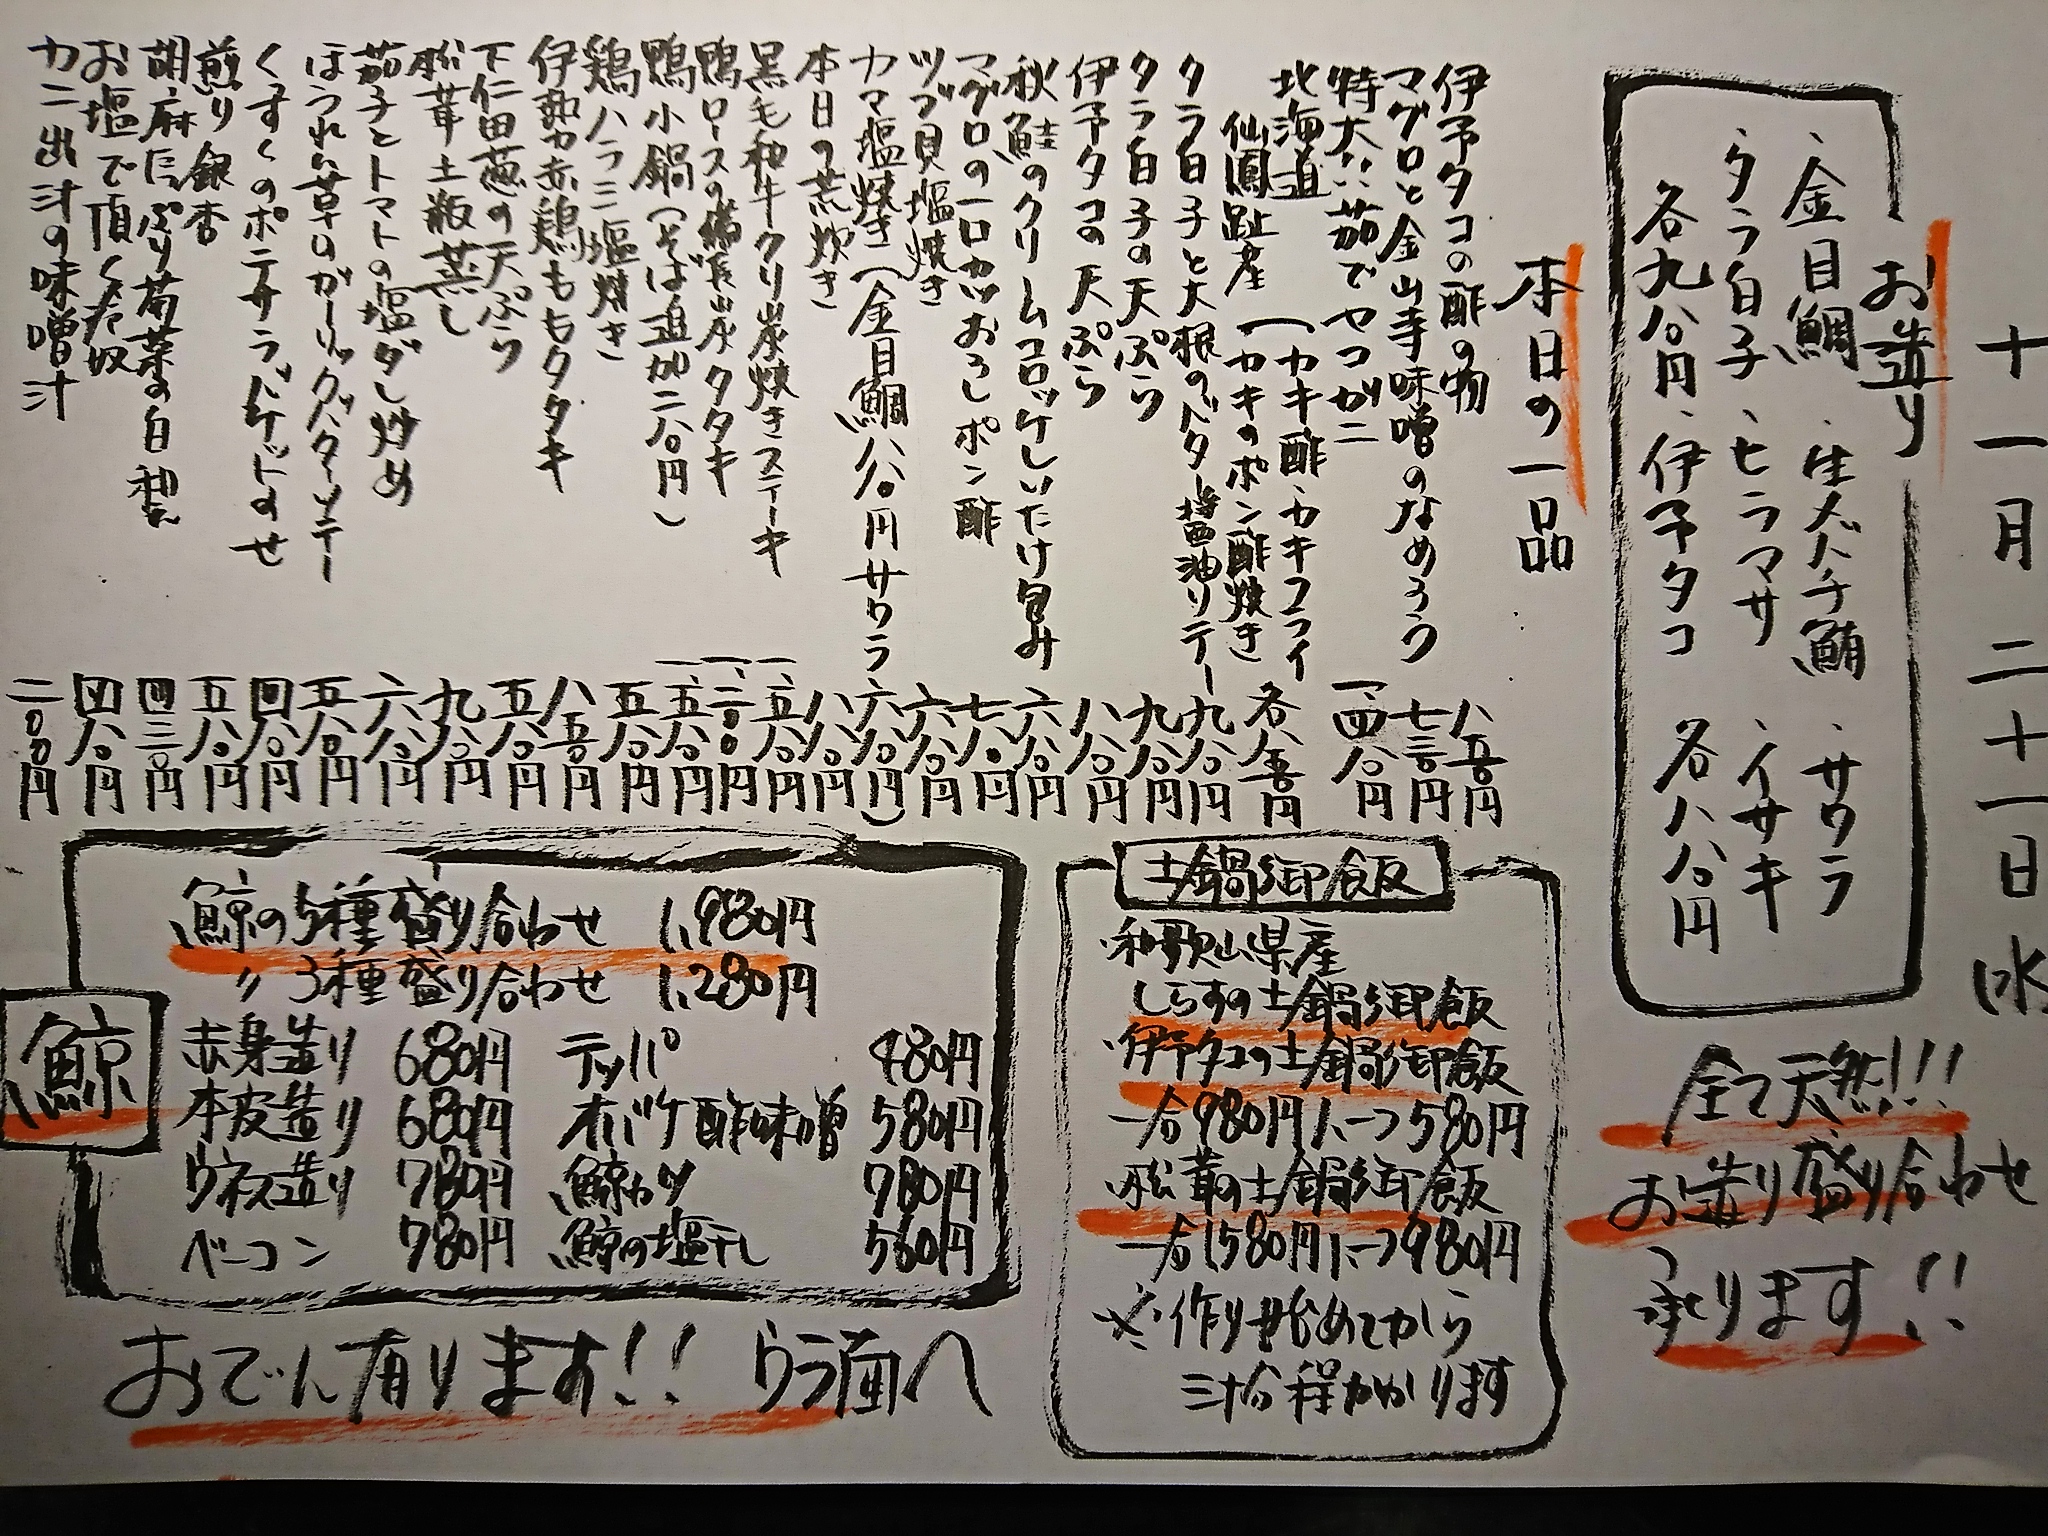 十一月二十一日(水)
お造り
・金目鯛 ・生メバチ鮪 ・サワラ
・タラ白子 ・ヒラマサ ・イサキ
各九八〇円 ・伊予タコ 各八八〇円
全て天然!!!
お造り盛り合わせ
承ります!!
本日の一品
伊予タコの酢の物 八五〇円
マグロと金山寺味噌のなめろう 七三〇円
特大!!茹でセコガニ 一、四八〇円
北海道 (カキ酢・カキフライ
仙鳳趾産 (カキのポン酢焼き 各八五〇円
タラ白子と大根のバター醤油ソテー 九八〇円
タラ白子の天ぷら 九八〇円
伊予タコの天ぷら 八八〇円
秋鮭のクリームコロッケしいたけ包み 六八〇円
マグロの一口カツおろしポン酢 七八〇円
ツブ貝塩焼き 六八〇円
カマ塩焼き(金目鯛八八〇円サワラ六八〇円)
本日の荒炊き 八八〇円
黒毛和牛クリ炭焼きステーキ 一、五八〇円
鴨ロースの備長炭タタキ 一、二〇〇円
鴨小鍋(そば追加二八〇円) 一、五八〇円
鶏ハラミ塩焼き 五八〇円
伊勢力赤鶏ももタタキ 八五〇円
下仁田葱の天ぷら 五八〇円
松茸土瓶蒸し 九八〇円
茄子とトマトの塩ダレ炒め 六八〇円
ほうれん草のガーリックバターソテー 五八〇円
くずくのポテサラバゲットのせ 四八〇円
煎り銀杏 五八〇円
胡麻たっぷり菊菜の白和え 四三〇円
お塩で頂く冷奴 四八〇円
カニ出汁の味噌汁 二〇〇円
土鍋御飯
・和歌山県産
しらすの土鍋御飯
・伊予タコの土鍋御飯
一合980円ハーフ580円
・松茸の土鍋御飯
一合1580円ハーフ980円
※作り始めてから
三十分程かかります
鯨
鯨の5種盛り合わせ 1,980円
〃 3種盛り合わせ 1,280円
赤身造り 680円 テッパ 480円
本皮造り 680円 オバケ酢味噌 580円
ウネス造り 780円 鯨カツ 780円
ベーコン 780円 鯨の塩干し 560円
おでん有ります!! ウラ面へ